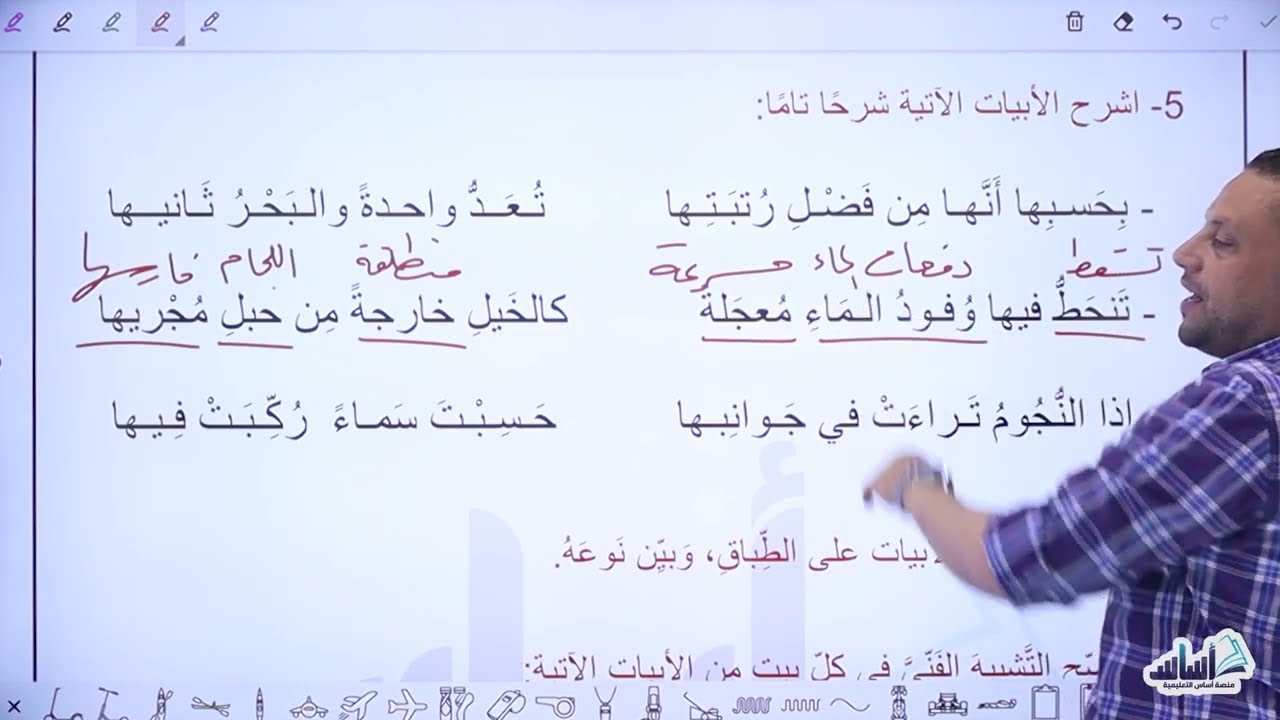 5- اشرح الأبيات الآتية شرحًا تامًا:
- بِحَسبِها أَنَّها مِن فَضْلِ رُتبَتِها تُعَدُّ واحدةً والبَحْرُ ثَانيها
تسقط دفعات الماء مسرعة منطلقة اللجام فارسها
- تَنحَطُّ فيها وُفودُ المَاءِ مُعجَلةً كالخَيلِ خارجةً مِن حبلِ مُجْريها
اذا النُّجُومُ تَراءَتْ في جَوانِبها حَسِبْتَ سَماءً رُكِّبَتْ فِيها
على الطِّباقِ، وَبيِّن نَوعَهُ.
التَّشبيهَ الفَنّيَّ في كلّ بيت من الأبيات الآتية:
أساس
منصة أساس التعليمية